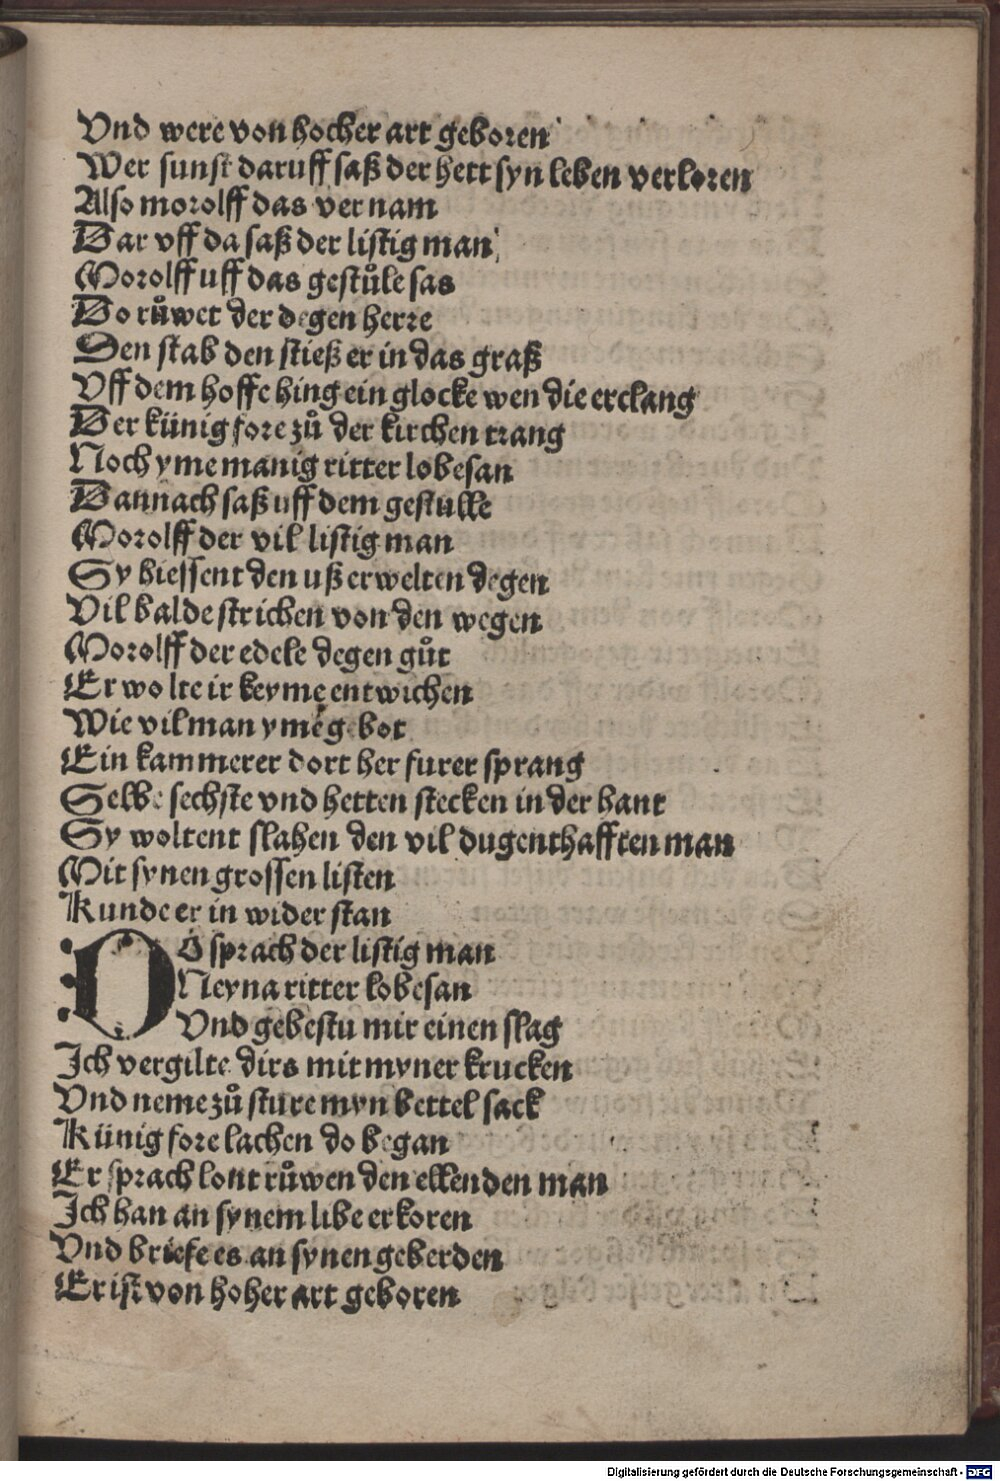 Vnd were von hocher art geboren
Wer sunst daruff saß der hett syn leben verloren
Also morolff das ver nam
Dar vff da saß der listig man
Morolff uff das gestůle sas
Do růwet der degen herre
Den stab den stieß er in das graß
Vff dem hoffe hing ein glocke wen die erclang
Der künig fore zů der kirchen trang
Noch yme manig ritter lobesan
Dannach saß uff dem gestulle
Morolff der vil listig man
Sy hiessent den uß erwelten degen
Vil balde strichen von den wegen
Morolff der edele degen gůt
Er wolte ir keyme entwichen
Wie vil man yme gebot
Ein kammerer dort her furer sprang
Selbe sechste vnd hetten stecken in der hant
Sy woltent slahen den vil dugenthafften man
Mit synen grossen listen
Kunde er in wider stan
DO sprach der listig man
Neyna ritter lobesan
Vnd gebestu mir einen slag
Ich vergilte dirs mit myner krucken
Vnd neme zů sture myn bettel sack
Künig fore lachen do began
Er sprach lont růwen den ellenden man
Ich han an synem libe erkoren
Vnd briefe es an synen geberden
Er ist von hoher art geboren
Digitalisierung gefördert durch die Deutsche Forschungsgemeinschaft - DFG